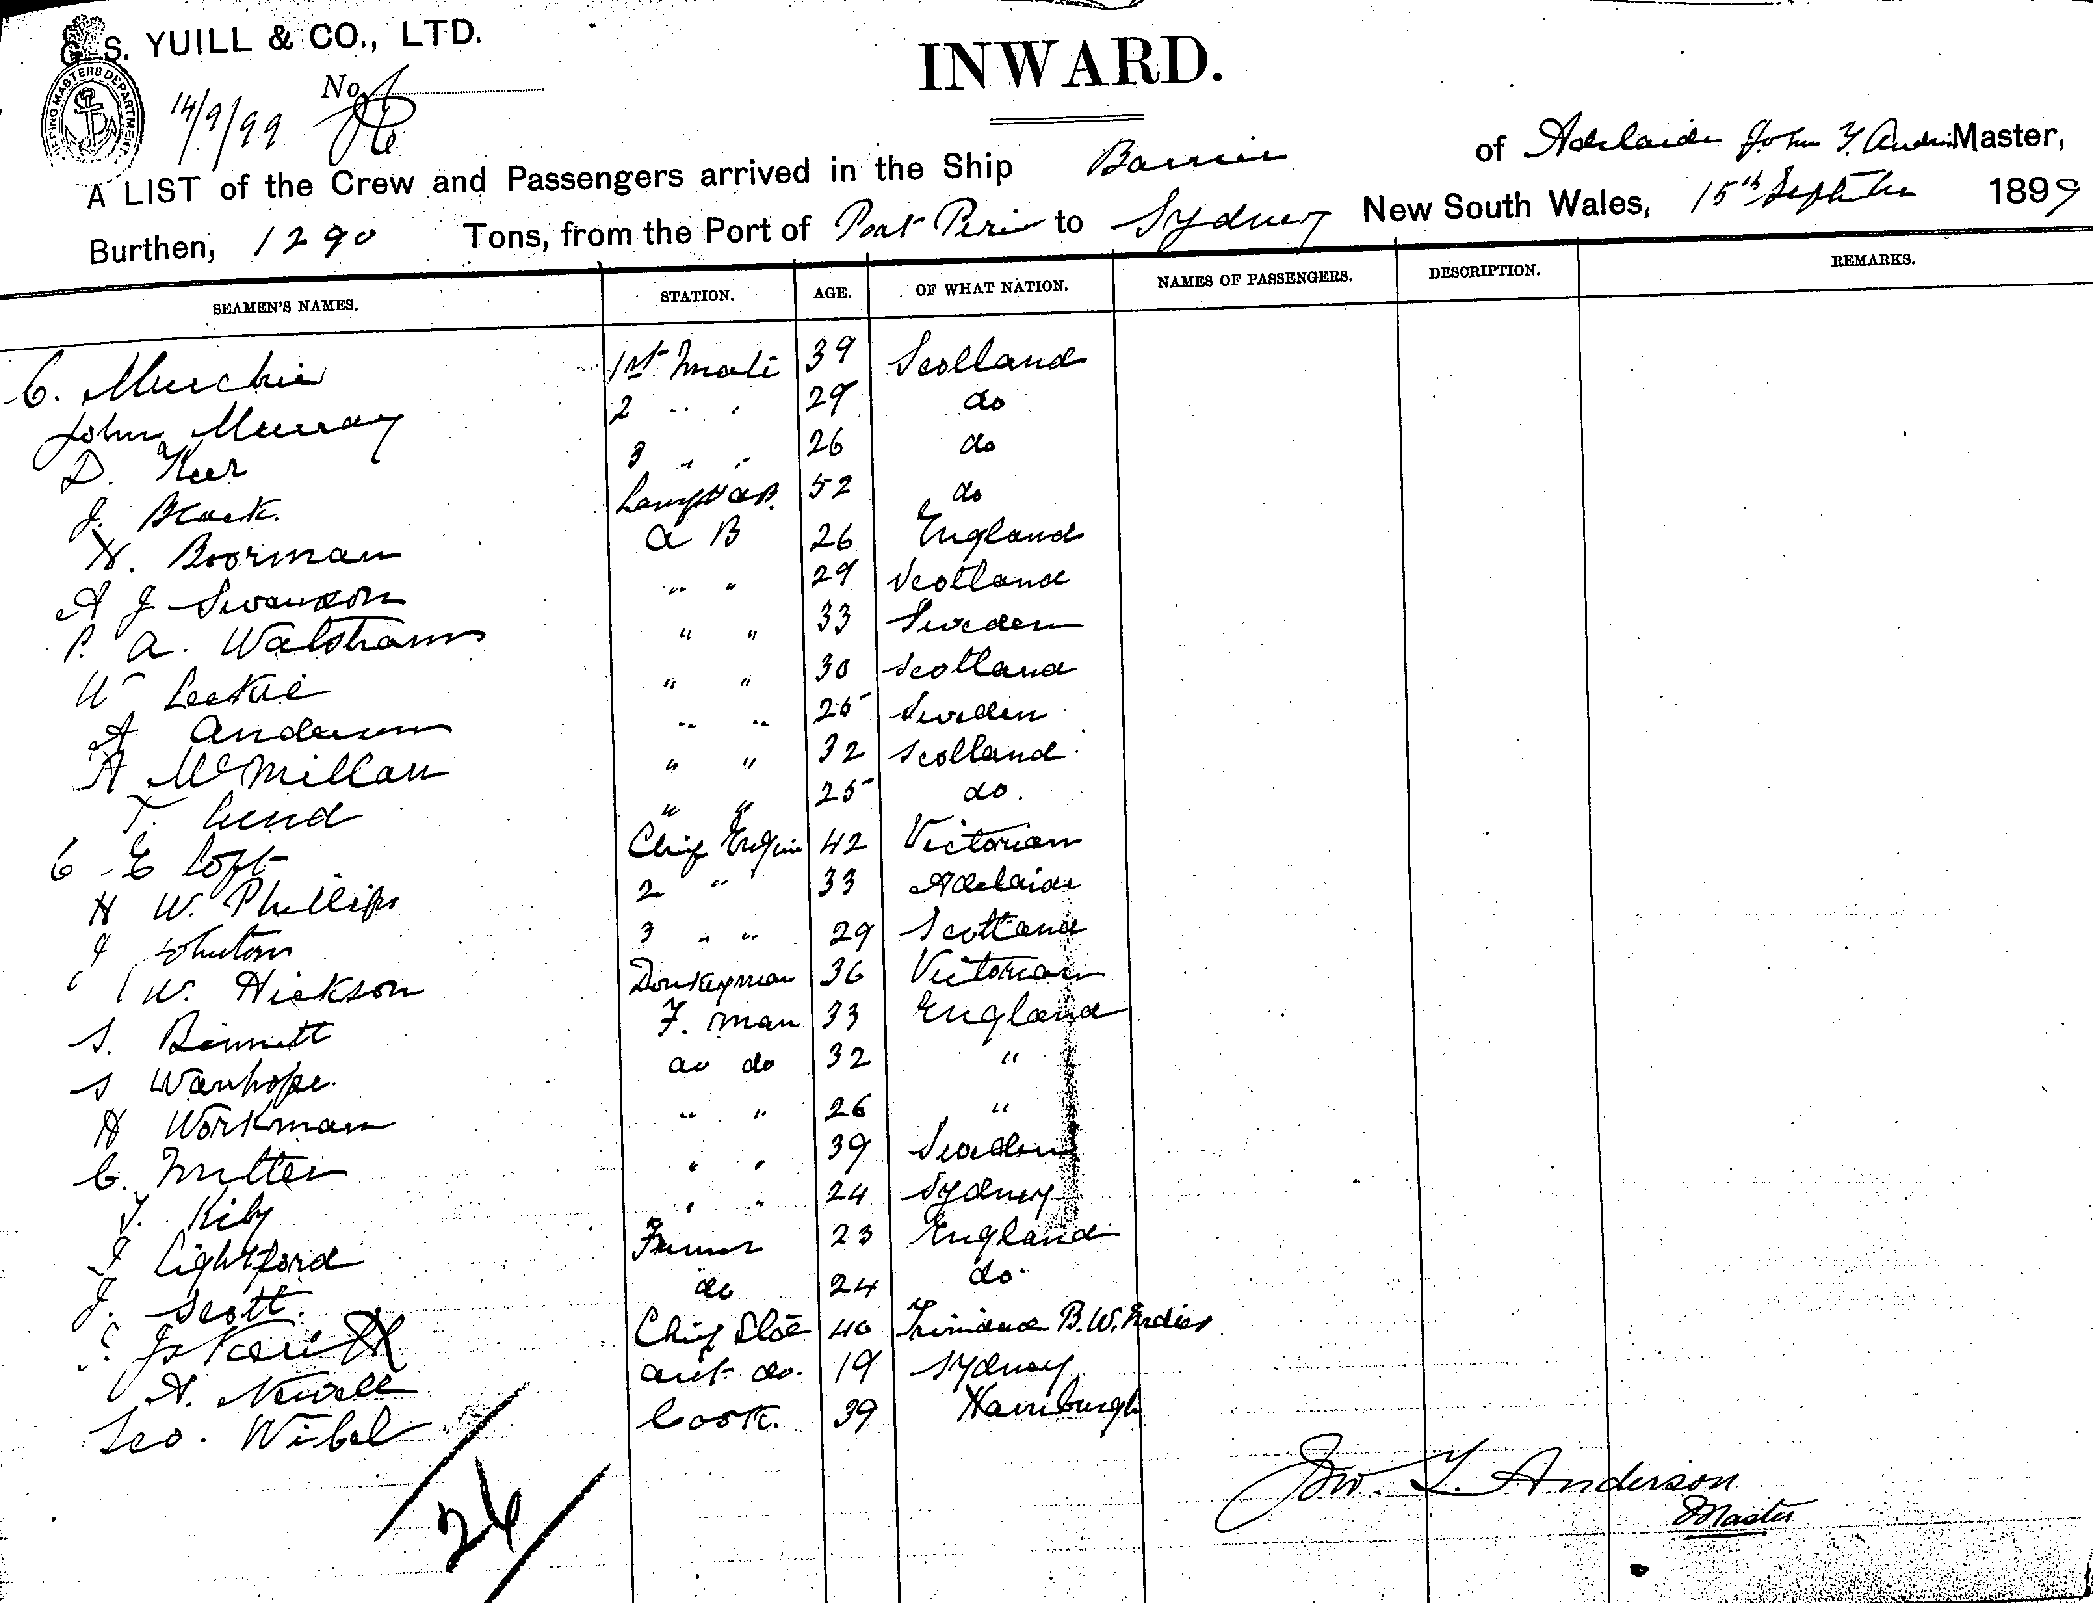 G. S. YUILL & CO., LTD.
INWARD.
No
14/9/99
A LIST of the Crew and Passengers arrived in the Ship Barrier of Adelaide John Y. Master,
Burthen, 1290 Tons, from the Port of Port Pirie to Sydney New South Wales, 15th September 1899
SEAMEN'S NAMES. STATION. AGE. OF WHAT NATION. NAMES OF PASSENGERS. DESCRIPTION. REMARKS.
C. Murchie 1st Mate 39 Scotland
John Murray 2 " " 29 do
D. Keer 3 " " 26 do
J. Black. 52 do
W. Boorman A B 26 England
A J Swanson " " 29 Scotland
P. A. " " 33 Sweden
W Leckie " " 30 Scotland
A Anderson " " 25 Sweden
A McMillan " " 32 Scotland
T. Lund " " 25 do.
C E Loft Chief Engin 42 Victorian
H W. Phillips 2 " 33 Adelaide
J Johnston 3 " " 29 Scotland
W. Hickson Donkeyman 36 Victorian
S. Bennett F. man 33 England
S Wanhope. do do 32 "
H Workman " " 26 "
C. " " 39 Sweden
T. Kiby " " 24 Sydney
J Lightford 23 England
J. Scott. do 24 do.
Chief 40 Trinidad B. W. Indies
A. Newell do. 19 Sydney
Geo. Wibel Cook. 39 Hamburgh
26
Jno. Y. Anderson
Master